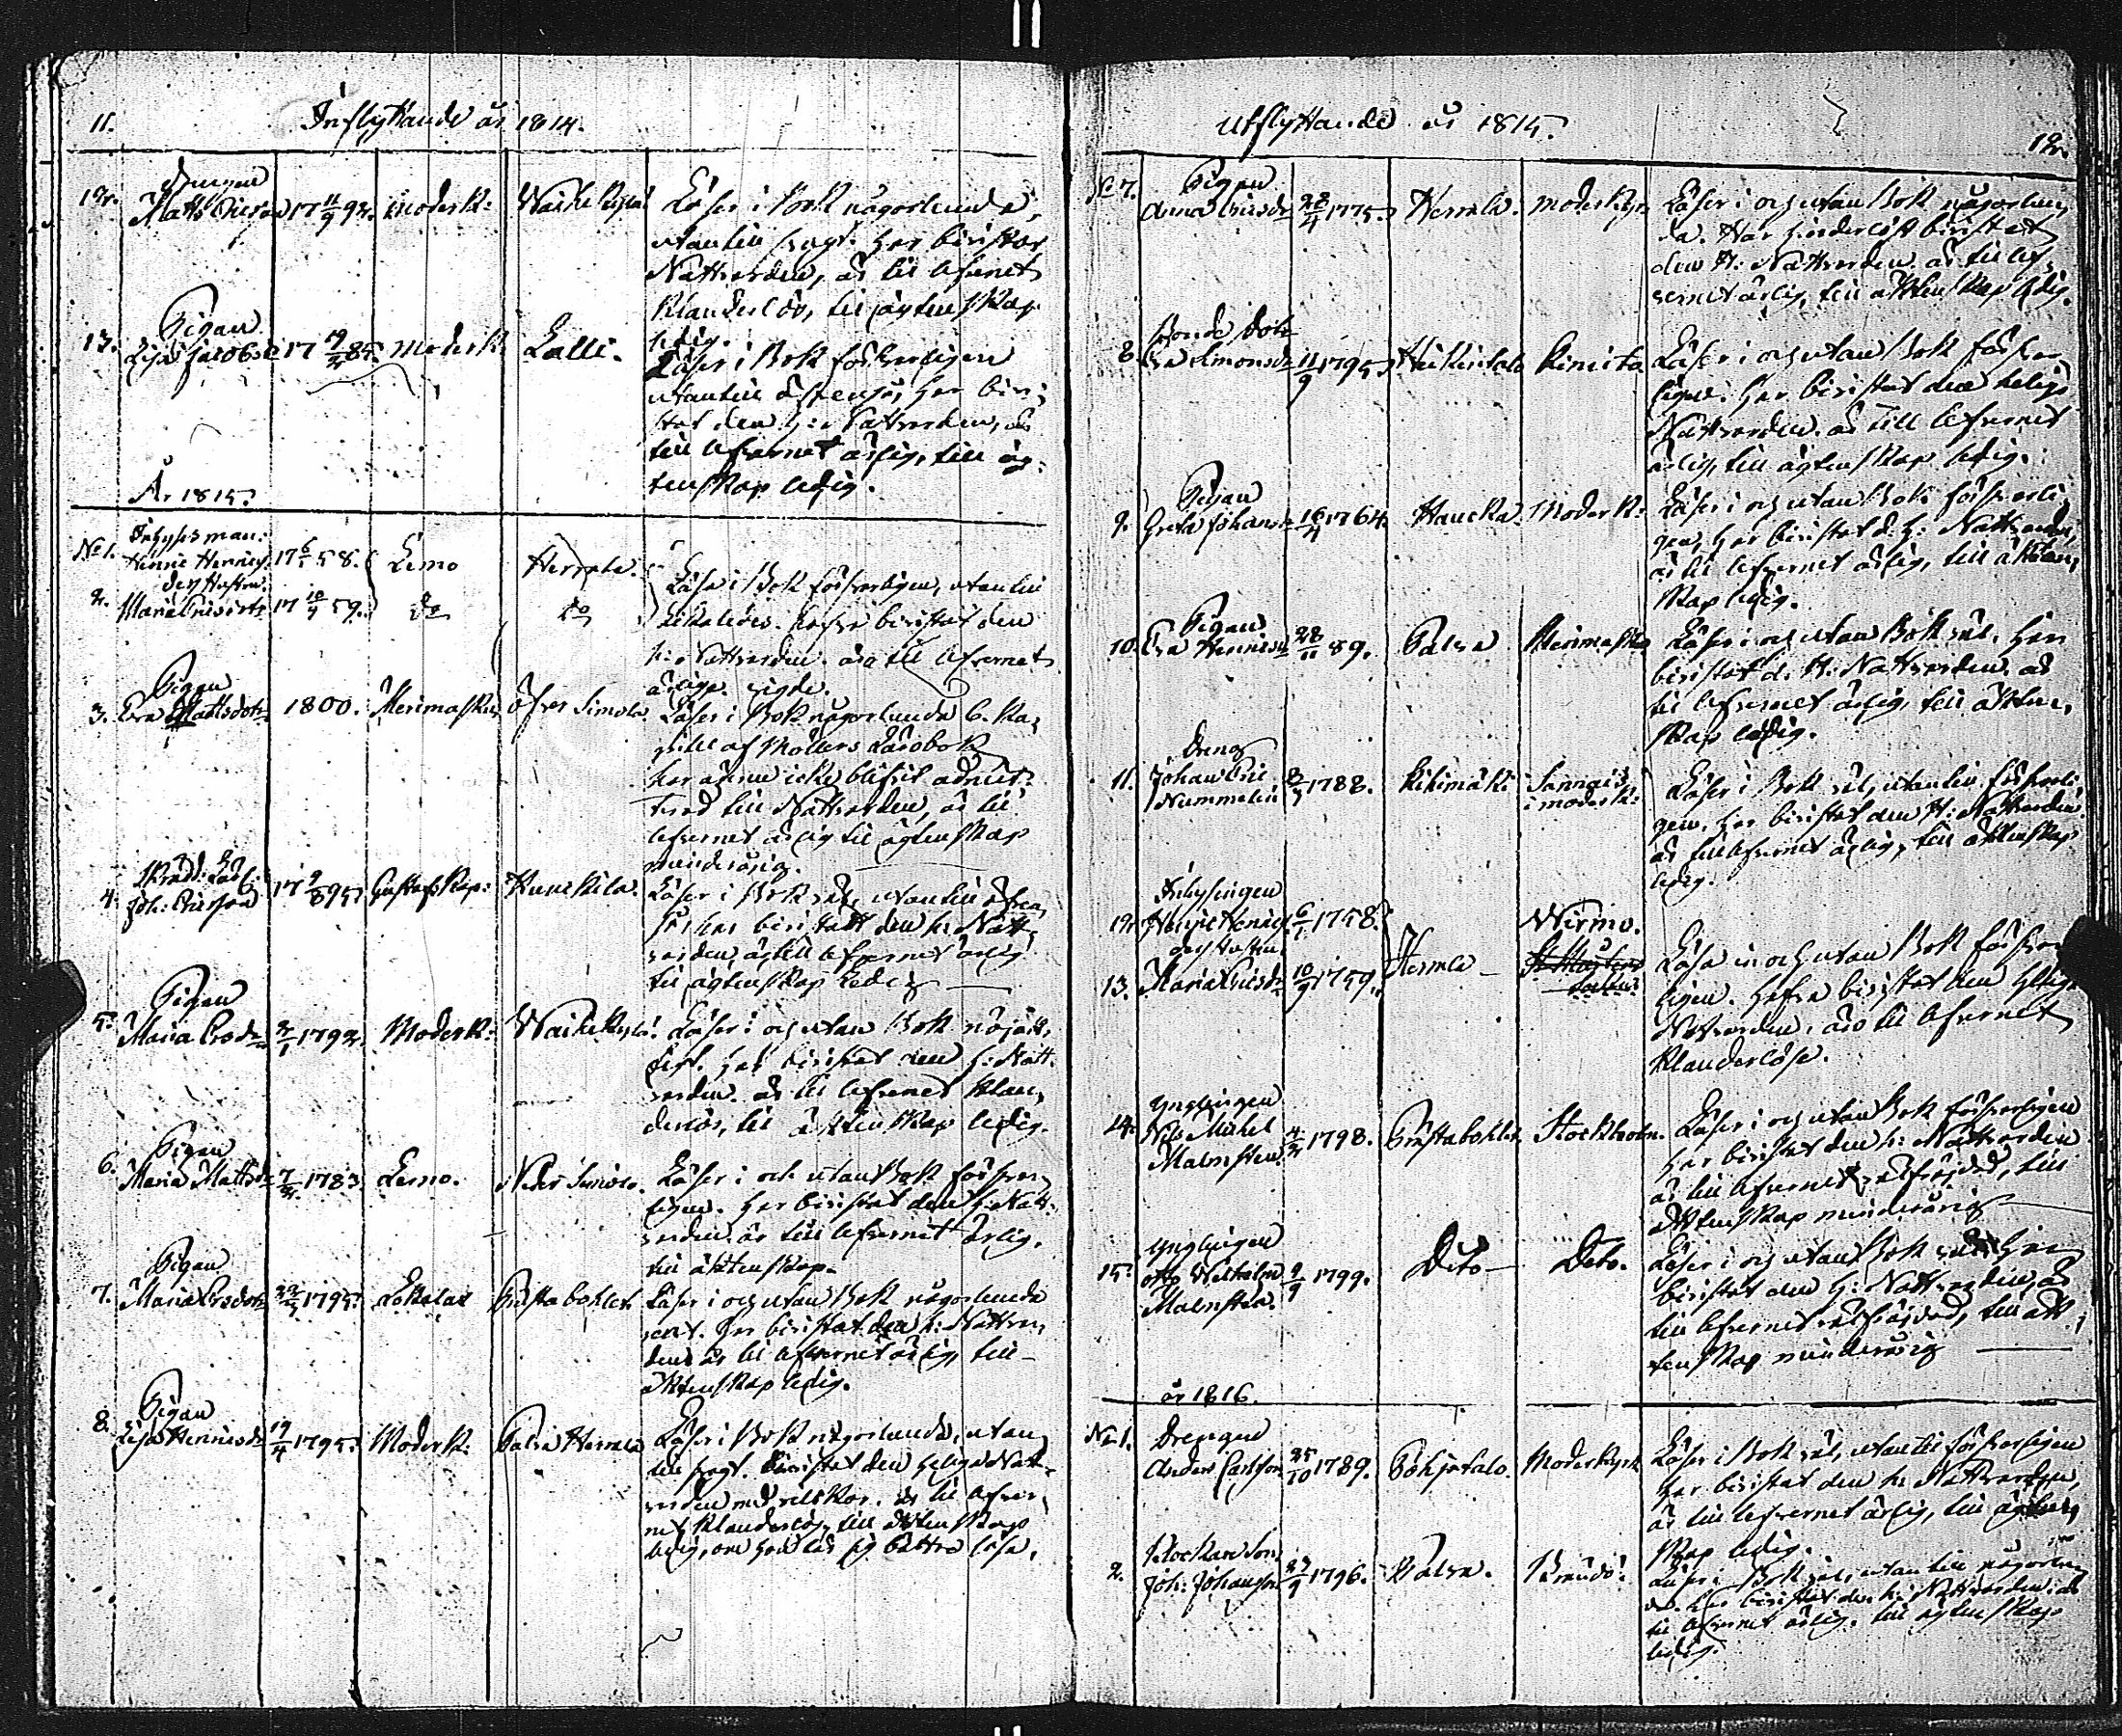 11.
Inflyttande år 1814.
12. Drengen
Matts Ericson 17 11/9 92. Moderk: Waihekylä Läser i Bok någorlunda,
utantill svagt. Har bevistat
Nattvarden, är til lefvernet
klanderlös, til ägtenskap
ledig.
13. Pigan
Lisa Jacobsd 17 19/2 85. Moderk: Lalli. Läser i Bok försvarligen
utantill har bevi-
stat den H: Nattvarden, är
till lefvernet ärlig, till äg-
tenskap ledig.
År 1815.
No 1. Inhysesman:
Henric Henrics. 17 6/1 58. Lemo Herrala.
des Hustru.
2. Maria Ericsdr 17 10/9 59. do do
Läsa i Bok försvarligen, utantill
hafva bevistat den
h: Nattvarden. äro till lefvernet
ärlige.
Pigan
3. Eva Mattsdotr 1800. Merimasku Öfver Simola. Läser i Bok någorlunda 6. Ka-
pitlet af Möllers Läsobok
har ännu icke blifvit admit-
terad till Nattvarden, är till
lefvernet ärlig til ägtenskap
minderårig.
4. Joh: Ericsson 17 9/8 95. Gustafs Kap: Hunckila. Läser i Bok väl, utantill
har bevistatt den h: Natt-
varden, är till lefvernet ärlig
till ägtenskap Ledig
Pigan
5. Maria Ersdr 2/1 1792. Moderk: Waihekylä. Läser i och utan Bok
Har bevistat den H: Natt-
varden. är til lefvernet klan-
derlös, til äktenskap ledig.
Pigan
6. Maria Mattsdr 7/2 1783. Lemo. Neder Simola. Läser i och utan Bok försvar-
ligen. Har bevistat den h: Natt-
varden. är till lefvernet ärlig.
till äktenskap.
Pigan
7. Maria Ersdotr 22/2 1795. Lokalax Prästabohlet Läser i och utan Bok någorlunda
Har bevistat den h: Nattvar-
den är til lefvernet ärlig, till
äktenskap ledig.
Pigan
8. Lisa Henricsdr 19/4 1795. Moderk: Palva Herrala Läser i Bok någorlunda, utan-
till svagt. bevistat den heliga Natt-
varden med vilkor. är til lefver-
net klanderlös, till äktenskap
ledig, om hon lär sig bättre läsa.
Utflyttande år 1815.
12.
No 7. Pigan
Anna Ericsdr 22/4 1775. Herrala. Moderkyr. Läser i och utan Bok någorlun-
da. Har hinderlöst bevistat
den H: Nattvarden är till lef-
vernet ärlig, till äktenskap ledig.
Bonde dotr
8. Eva Simonsdr 11/9 1795. Heikintalo Kimito Läser i och utan Bok försvar-
ligen. Har bevistat den helige
Nattvarden. är till lefvernet
ärlig, till ägtenskap ledig.
Pigan
9. Greta Johansdr 16/4 1764. Haucka. Moderk: Läser i och utan Bok försvarli-
gen, har bevistat d. h: Nattvarden,
är til lefvernet ärlig, till äkten-
skap ledig.
Pigan
10. Eva Henricsdr 28/11 89. Palva Merimasku Läser i och utan Bok väl. Har
bevistat d. H: Nattvarden. är
til lefvernet ärlig, till äkten-
skap ledig.
Dreng
11. Johan Eric 8/3 1788. Rikimäki Sannais
Nummelin i moderk:
Läser i Bok väl, utantill försvarli-
gen. Har bevistat den H: Nattvarden
är till lefvernet ärlig, till äktenskap
ledig.
Inhysingen
12. Henric Henrics 6/1 1758. Wirmo.
des Hustru Herrala
13. Maria Ericsdr 10/9 1759.
Läsa i och utan Bok försvar-
ligen. Hafva bevistat den heliga
Nattvarden, äro til lefvernet
klanderlöse.
Ynglingen
14. Nils Mickel 4/2 1798. Prästabohlet. Stockholm. Läser i och utan Bok försvarligen
Malmsten. har bevistat den h: Nattvarden
är till lefvernet välfräjdad, till
äktenskap minderårig
Ynglingen
15. Otto Wilhelm 9/9 1799. Dito Dito. Läser i och utan Bok väl. Har
Malmsten. bevistat den h: Nattvarden, är
till lefvernet välfräjdad, till äk-
tenskap minderårig
år 1816.
No 1. Drengen
Anders Carlsson 25/10 1789. Pohjatalo. Moderkyrk Läser i Bok väl, utantill försvarligen
har bevistat den h: Nattvarden,
är till lefvernet ärlig, till ägten-
skap ledig.
2. Klockare Son
Joh: Johansson 27/9 1796. Palva. Brändö. Läser i Bok väl, utantill någorlun-
da. Har bevistat den h: Nattvarden är
til lefvernet ärlig. till ägtenskap
ledig.